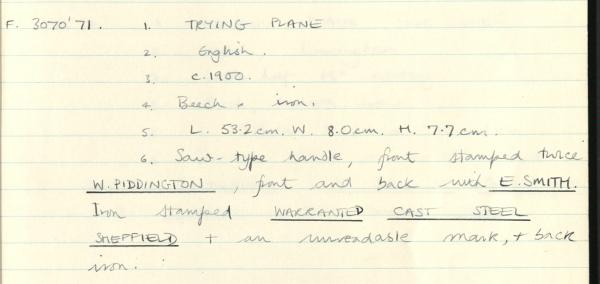 F. 3070'71. 1. TRYING PLANE
2. English.
3. c.1900.
4. Beech & iron.
5. L. 53.2cm. W. 8.0cm. H. 7.7cm.
6. Saw-type handle, front stamped twice
W. PIDDINGTON, front and back with E. SMITH.
Iron stamped WARRANTED CAST STEEL
SHEFFIELD + an unreadable mark, + back
iron.